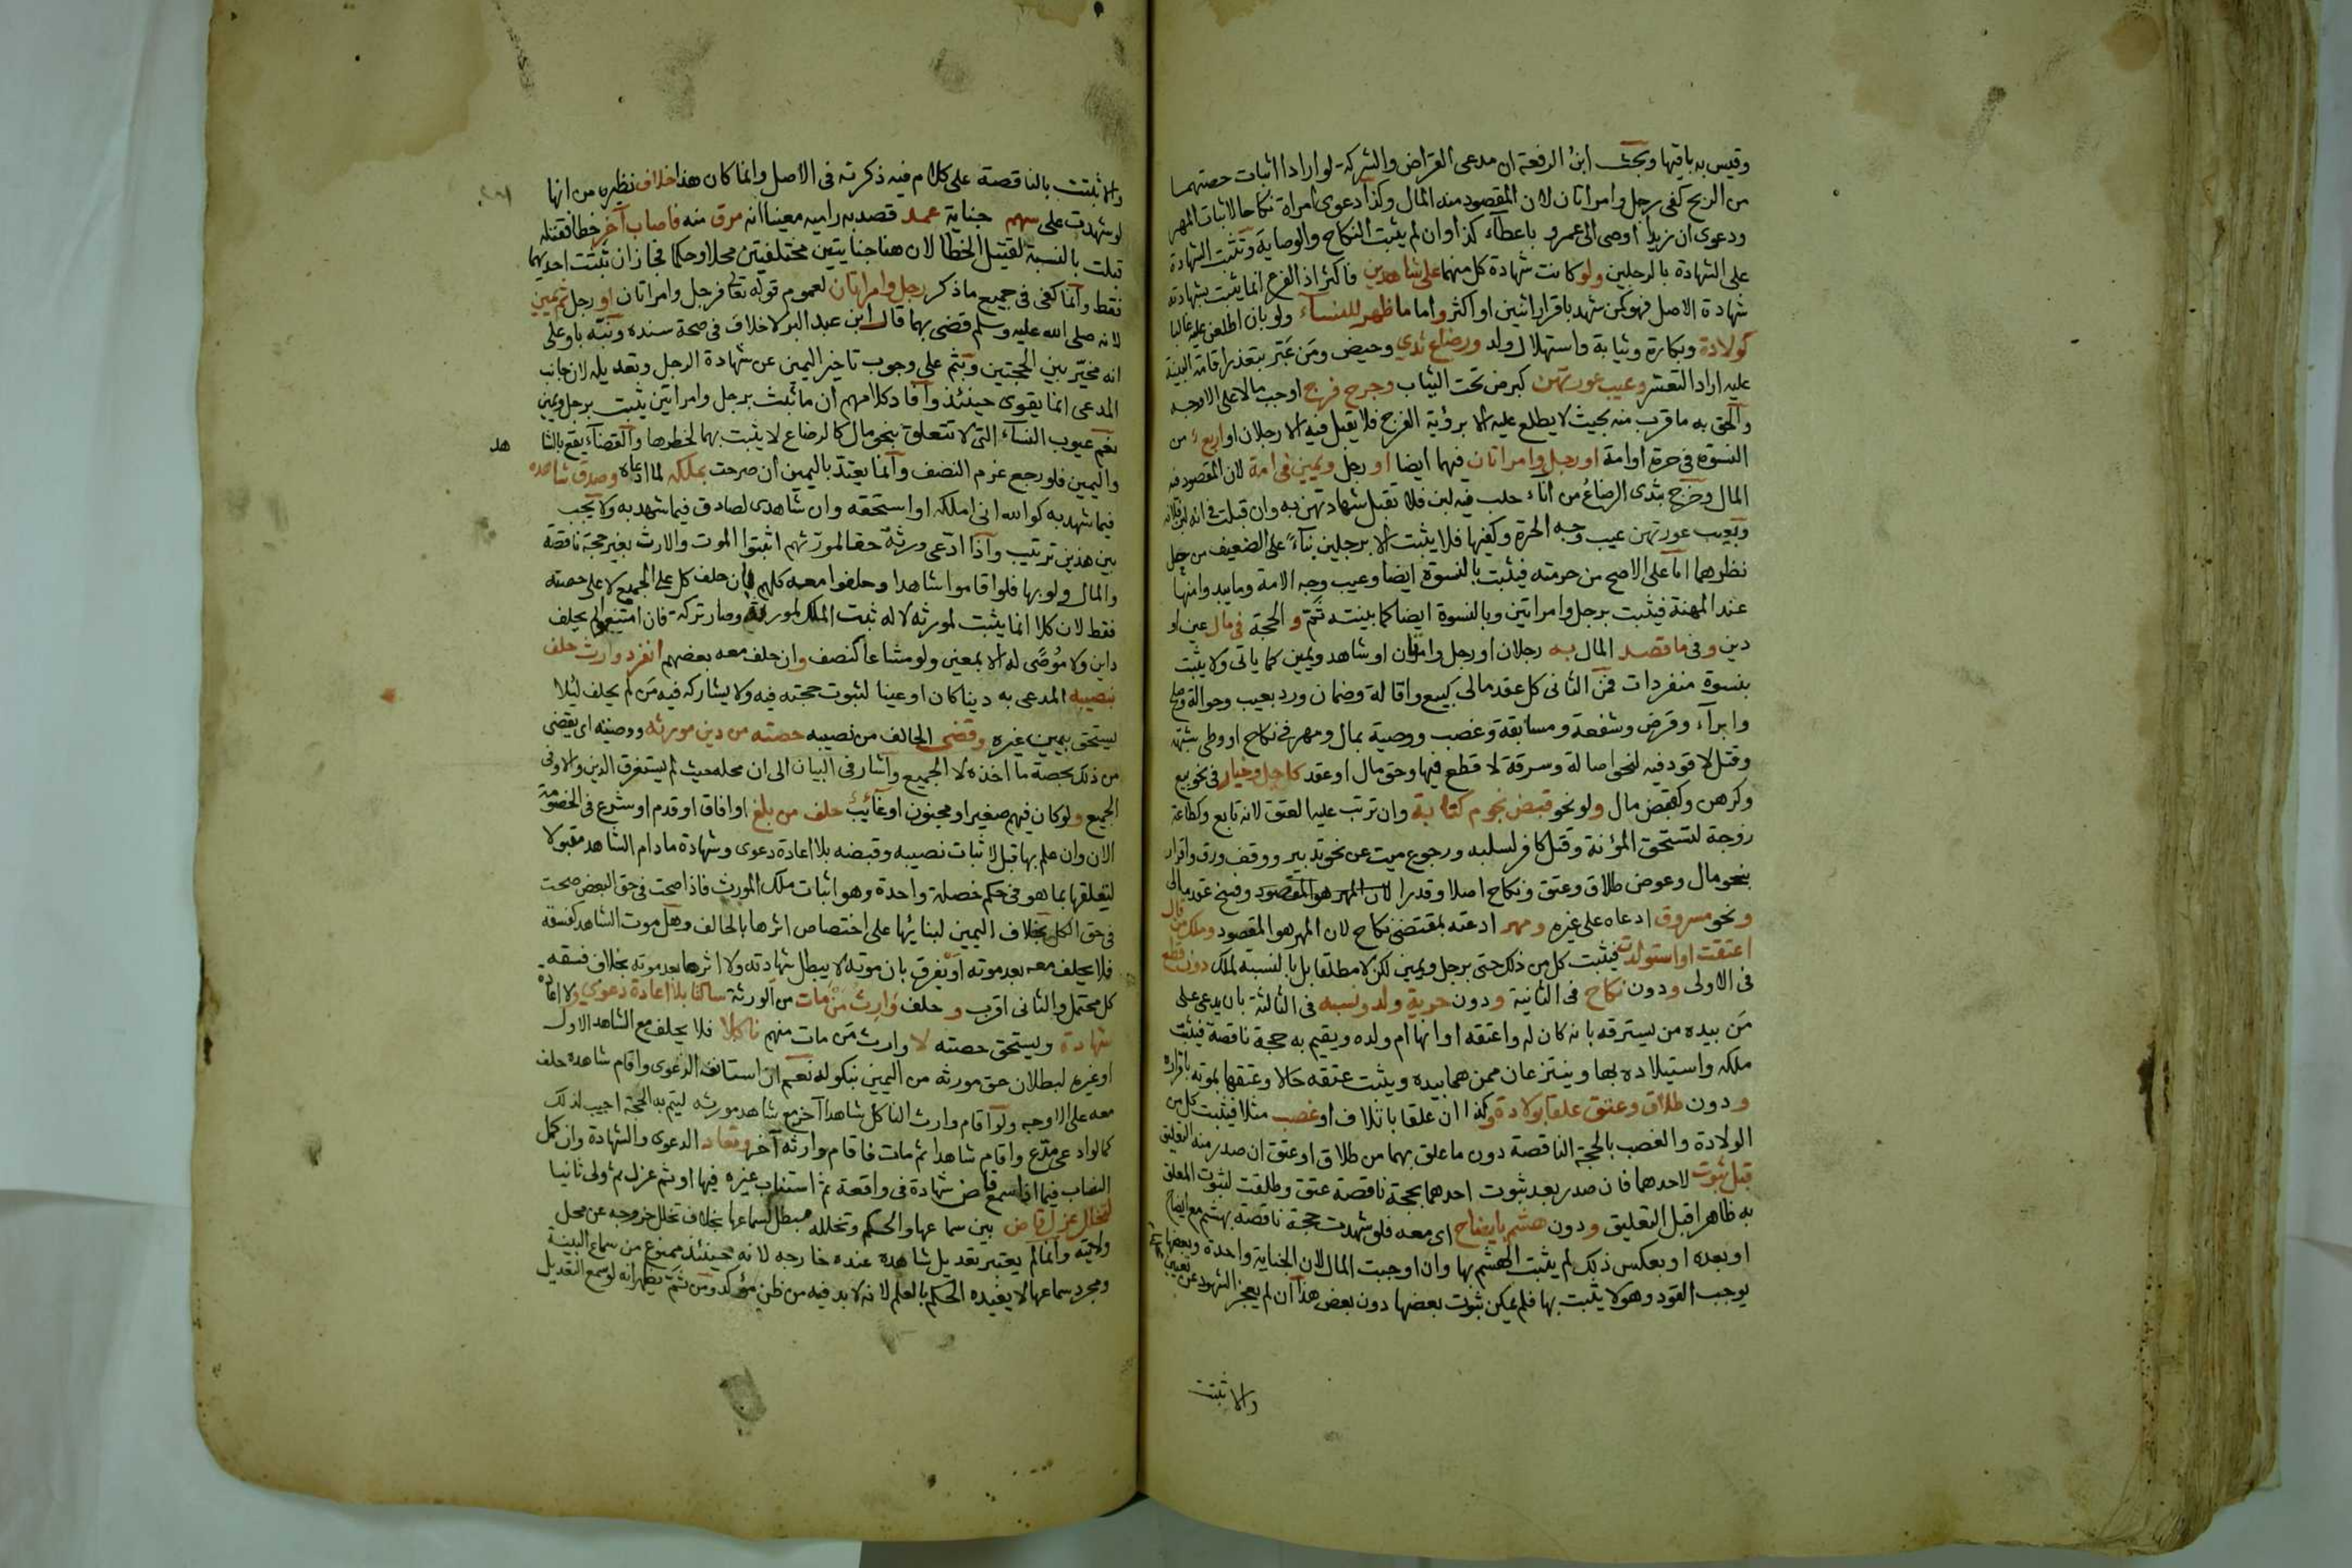 وقيس به باقيها وبحث ابن الرفعة ان مدعى القراض والشركة لو ارادا اثبات حصتهما
من الربح كفى رجل وامراتان لان المقصود منه المال وكذا دعوى امراة نكاحا لاثبات المهر
ودعوى ان زيدا اوصى الى عمرو باعطاء كذا وان لم يثبت النكاح والوصاية وتثبت الشهادة
على الشهادة بالرجلين ولو كانت شهادة كل منهما على شاهدين فاكثر اذ الفرع انما يثبت بشهادته
شهادة الاصل فهو كمن شهد باقرار اثنين او اكثر واما ما ظهر للنساء ولو بان اطلعن عليه غالبا
كولادة وبكارة وثيابة واستهلال ولد ورضاع ثدي وحيض ومن عبر بتعذر اقامة البينة
عليه اراد التعسر وعيب عورتهن كبرص تحت الثياب وجرح فرج اوجب مالا على الاوجه
والحق به ما قرب منه بحيث لا يطلع عليه الا برؤية الفرج فلا يقبل فيه الا رجلان او اربع من
النسوة في حرة او امة او رجل وامراتان فيهما ايضا او رجل ويمين في امة لان المقصود منه
المال وخرج بثدى الرضاع من اناء حلب فيه لبن فلا تقبل شهادتهن به وان قبلت في انه لبن فلانة
وبعيب عورتهن عيب وجه الحرة وكفيها فلا يثبت الا برجلين بناء على الضعيف من حل
نظرهما اما على الاصح من حرمته فيثبت بالنسوة ايضا وعيب وجه الامة وما يبدو منها
عند المهنة فيثبت برجل وامراتين وبالنسوة ايضا كما بينته ثم و الحجة في مال عين او
دين وفي ما قصد المال به رجلان او رجل وامراتان او شاهد ويمين كما ياتى ولا يثبت
بنسوة منفردات فمن الثانى كل عقد مالى كبيع واقالة وضمان ورد بعيب وحوالة وصلح
وابراء وقرض وشفعة ومسابقة وغصب ووصية بمال ومهر في نكاح او وطى شبهة
وقتل لا قود فيه لنحو اصالة وسرقة لا قطع فيها وحق مال او عقد كاجل وخيار في نحو بيع
وكرهن وكقبض مال ولو نحو قبض نجوم كتابة وان ترتب عليه العتق لانه تابع وكطاعة
زوجة لتستحق المؤنة وقتل كافر لسلبه ورجوع ميت عن نحو تدبير ووقف ورق واقرار
بنحو مال وعوض طلاق وعتق ونكاح اصلا وقدرا لان المهر هو المقصود وفسخ عقد مالى
ونحو مسروق ادعاه على غيره ومهر ادعته بمقتضى نكاح لان المهر هو المقصود وملك من قال
اعتقت او استولدت فيثبت كل من ذلك حتى برجل ويمين لكن لا مطلقا بل بالنسبة لملك دون قطع
في الاولى ودون نكاح في الثانية ودون حرية ولد ونسبه في الثالثة بان يدعى على
من بيده من يسترقه بانه كان له واعتقه او انها ام ولده ويقيم به حجة ناقصة فيثبت
ملكه واستيلاده بها وينتزعان ممن هما بيده ويثبت عتقه حالا وعتقها بموته باقراره
ودون طلاق وعتق علقا بولادة وكذا ان علقا باتلاف او غصب مثلا فيثبت كل من
الولادة والغصب بالحجة الناقصة دون ما علق بهما من طلاق او عتق ان صدر منه التعليق
قبل ثبوت لاحدهما فان صدر بعد ثبوت احدهما بحجة ناقصة عتق وطلقت لثبوت المعلق
به ظاهرا قبل التعليق ودون هشم بايضاح اى معه فلو شهدت حجة ناقصة بهشم مع ايضاح
او بعده او بعكس ذلك لم يثبت الهشم بها وان اوجبت المال لان الجناية واحدة وبعضها
يوجب القود وهو لا يثبت بها فلم يمكن ثبوت بعضها دون بعض هذا ان لم يعجز الشهود عن تعيين
والا ثبتت
والا ثبتت بالناقصة على كلام فيه ذكرته في الاصل وانما كان هذا خلاف نظيره من انها
لو شهدت على سهم جناية عمد قصد به راميه معينا انه مرق منه فاصاب آخر خطا فقتله
قبلت بالنسبة لقتيل الخطا لان هنا جنايتين مختلفتين محلا وحكما فجاز ان تثبت احديهما
فقط وانما كفى في جميع ما ذكر رجل وامراتان لعموم قوله تعالى فرجل وامراتان او رجل ثم يمين
لانه صلى الله عليه وسلم قضى بهما قال ابن عبد البر لا خلاف في صحة سنده ونبه باو على
انه مخير بين الحجتين وبثم على وجوب تاخير اليمين عن شهادة الرجل وتعديله لان جانب
المدعى انما يقوى حينئذ وافاد كلامهم ان ما ثبت برجل وامراتين يثبت برجل ويمين
نعم عيوب النساء التى لا تتعلق بنحو مال كالرضاع لا يثبت بهما لخطرها والقضاء يقع بالشا
هد
واليمين فلو رجع غرم النصف وانما يعتد باليمين ان صرحت بملكه لما ادعاه وصدق شاهده
فيما شهد به كوالله انى املكه او استحقه وان شاهدى لصادق فيما شهد به ولا يجب
بين هذين ترتيب واذا ادعى ورثة حقا لمورثهم اثبتوا الموت والارث بغير حجة ناقصة
والمال ولو بها فلو اقاموا شاهدا وحلفوا معه كلهم بان حلف كل على الجميع لا على حصته
فقط لان كلا انما يثبت لمورثه لا له ثبت الملك لمورثه وصار تركة فان امتنعوا لم يحلف
داين ولا موصى له الا بمعين ولو مشاعا كنصف وان حلف معه بعضهم انفرد وارث حلف
بنصيبه المدعى به دينا كان او عينا لثبوت حجته فيه ولا يشاركه فيه من لم يحلف لئلا
يستحق بيمين غيره وقضى الحالف من نصيبه حصته من دين مورثه ووصيته اى يقضى
من ذلك بحصة ما اخذه لا الجميع واشار في البيان الى ان محله حيث لم يستغرق الدين والاوفى
الجميع ولو كان فيهم صغير او مجنون او غائب حلف من بلغ او افاق او قدم او شرع في الخصومة
الان وان علم بها قبل لاثبات نصيبه وقبضه بلا اعادة دعوى وشهادة ما دام الشاهد مقبولا
لتعلقها بما هو في حكم خصلة واحدة وهو اثبات ملك المورث فاذا صحت في حق البعض صحت
في حق الكل بخلاف اليمين لبنائها على اختصاص اثرها بالحالف وهل موت الشاهد كفسقه
فلا يحلف معه بعد موته او يفرق بان موته لا يبطل شهادته ولا اثرها بعد موته بخلاف فسقه
كل محتمل والثانى اقرب و حلف وارث من مات من الورثة ساكتا بلا اعادة دعوى ولا اعادة
شهادة ويستحق حصته لا وارث من مات منهم ناكلا فلا يحلف مع الشاهد الاول
او غيره لبطلان حق مورثه من اليمين بنكوله نعم ان استانف الدعوى واقام شاهده حلف
معه على الاوجه ولو اقام وارث الناكل شاهدا آخر مع شاهد مورثه ليتم به الحجة اجيب لذلك
كما لو ادعى مدع واقام شاهدا ثم مات فاقام وارثه آخر وتعاد الدعوى والشهادة وان كمل
النصاب فيما اذا سمع قاض شهادة في واقعة ثم استناب غيره فيها او ثم عزل ثم ولى ثانيا
لتخلل عزل قاض بين سماعها والحكم وتخلله مبطل لسماعها بخلاف تخلل خروجه عن محل
ولايته وانما لم يعتبر تعديل شاهده عنده خارجه لانه حينئذ ممنوع من سماع البينة
ومجرد سماعها لا يفيده الحكم بالعلم لانه لا بد فيه من ظن مؤكد ومن ثم يظهر انه لو سمع التعديل